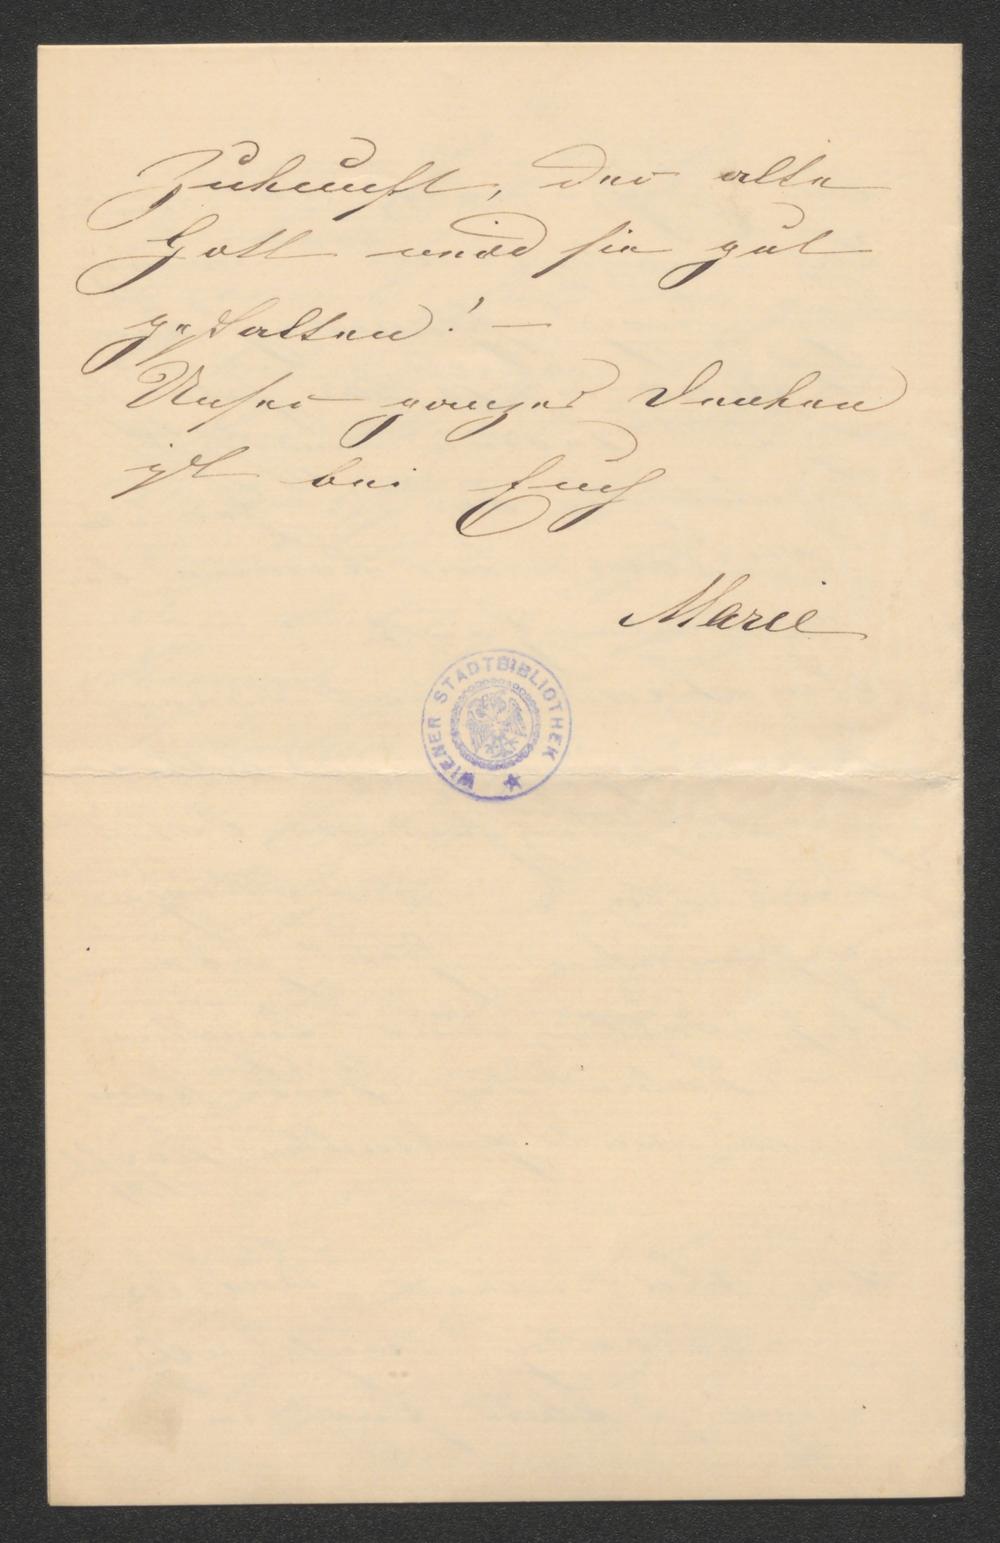 Zukunft, der alte
Gott wird sie gut
gestalten! —
Unser ganzes Denken
ist bei Euch
Marie
WIENER STADTBIBLIOTHEK